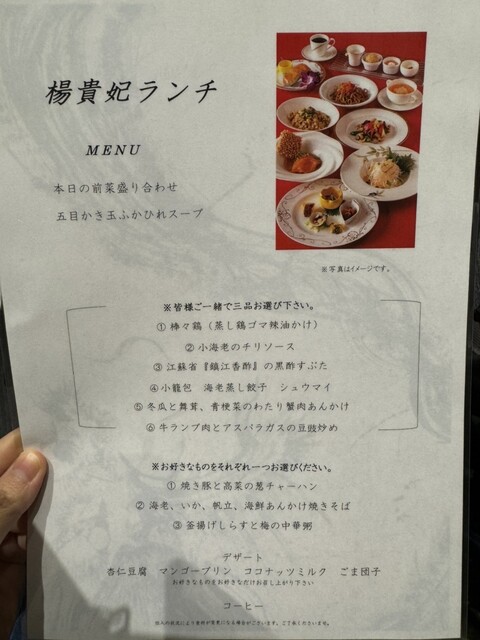 楊貴妃ランチ
MENU
本日の前菜盛り合わせ
五目かき玉ふかひれスープ
※写真はイメージです。
※皆様ご一緒で三品お選び下さい。
① 棒々鶏（蒸し鶏ゴマ辣油かけ）
② 小海老のチリソース
③ 江蘇省『鎮江香酢』の黒酢すぶた
④ 小籠包　海老蒸し餃子　シュウマイ
⑤ 冬瓜と舞茸、青梗菜のわたり蟹肉あんかけ
⑥ 牛ランプ肉とアスパラガスの豆豉炒め
※お好きなものをそれぞれ一つお選びください。
① 焼き豚と高菜の葱チャーハン
② 海老、いか、帆立、海鮮あんかけ焼きそば
③ 釜揚げしらすと梅の中華粥
デザート
杏仁豆腐　マンゴープリン　ココナッツミルク　ごま団子
お好きなものをお好きなだけお召し上がり下さい
コーヒー
仕入の状況により食材が変更になる場合がございます。ご了承くださいませ。